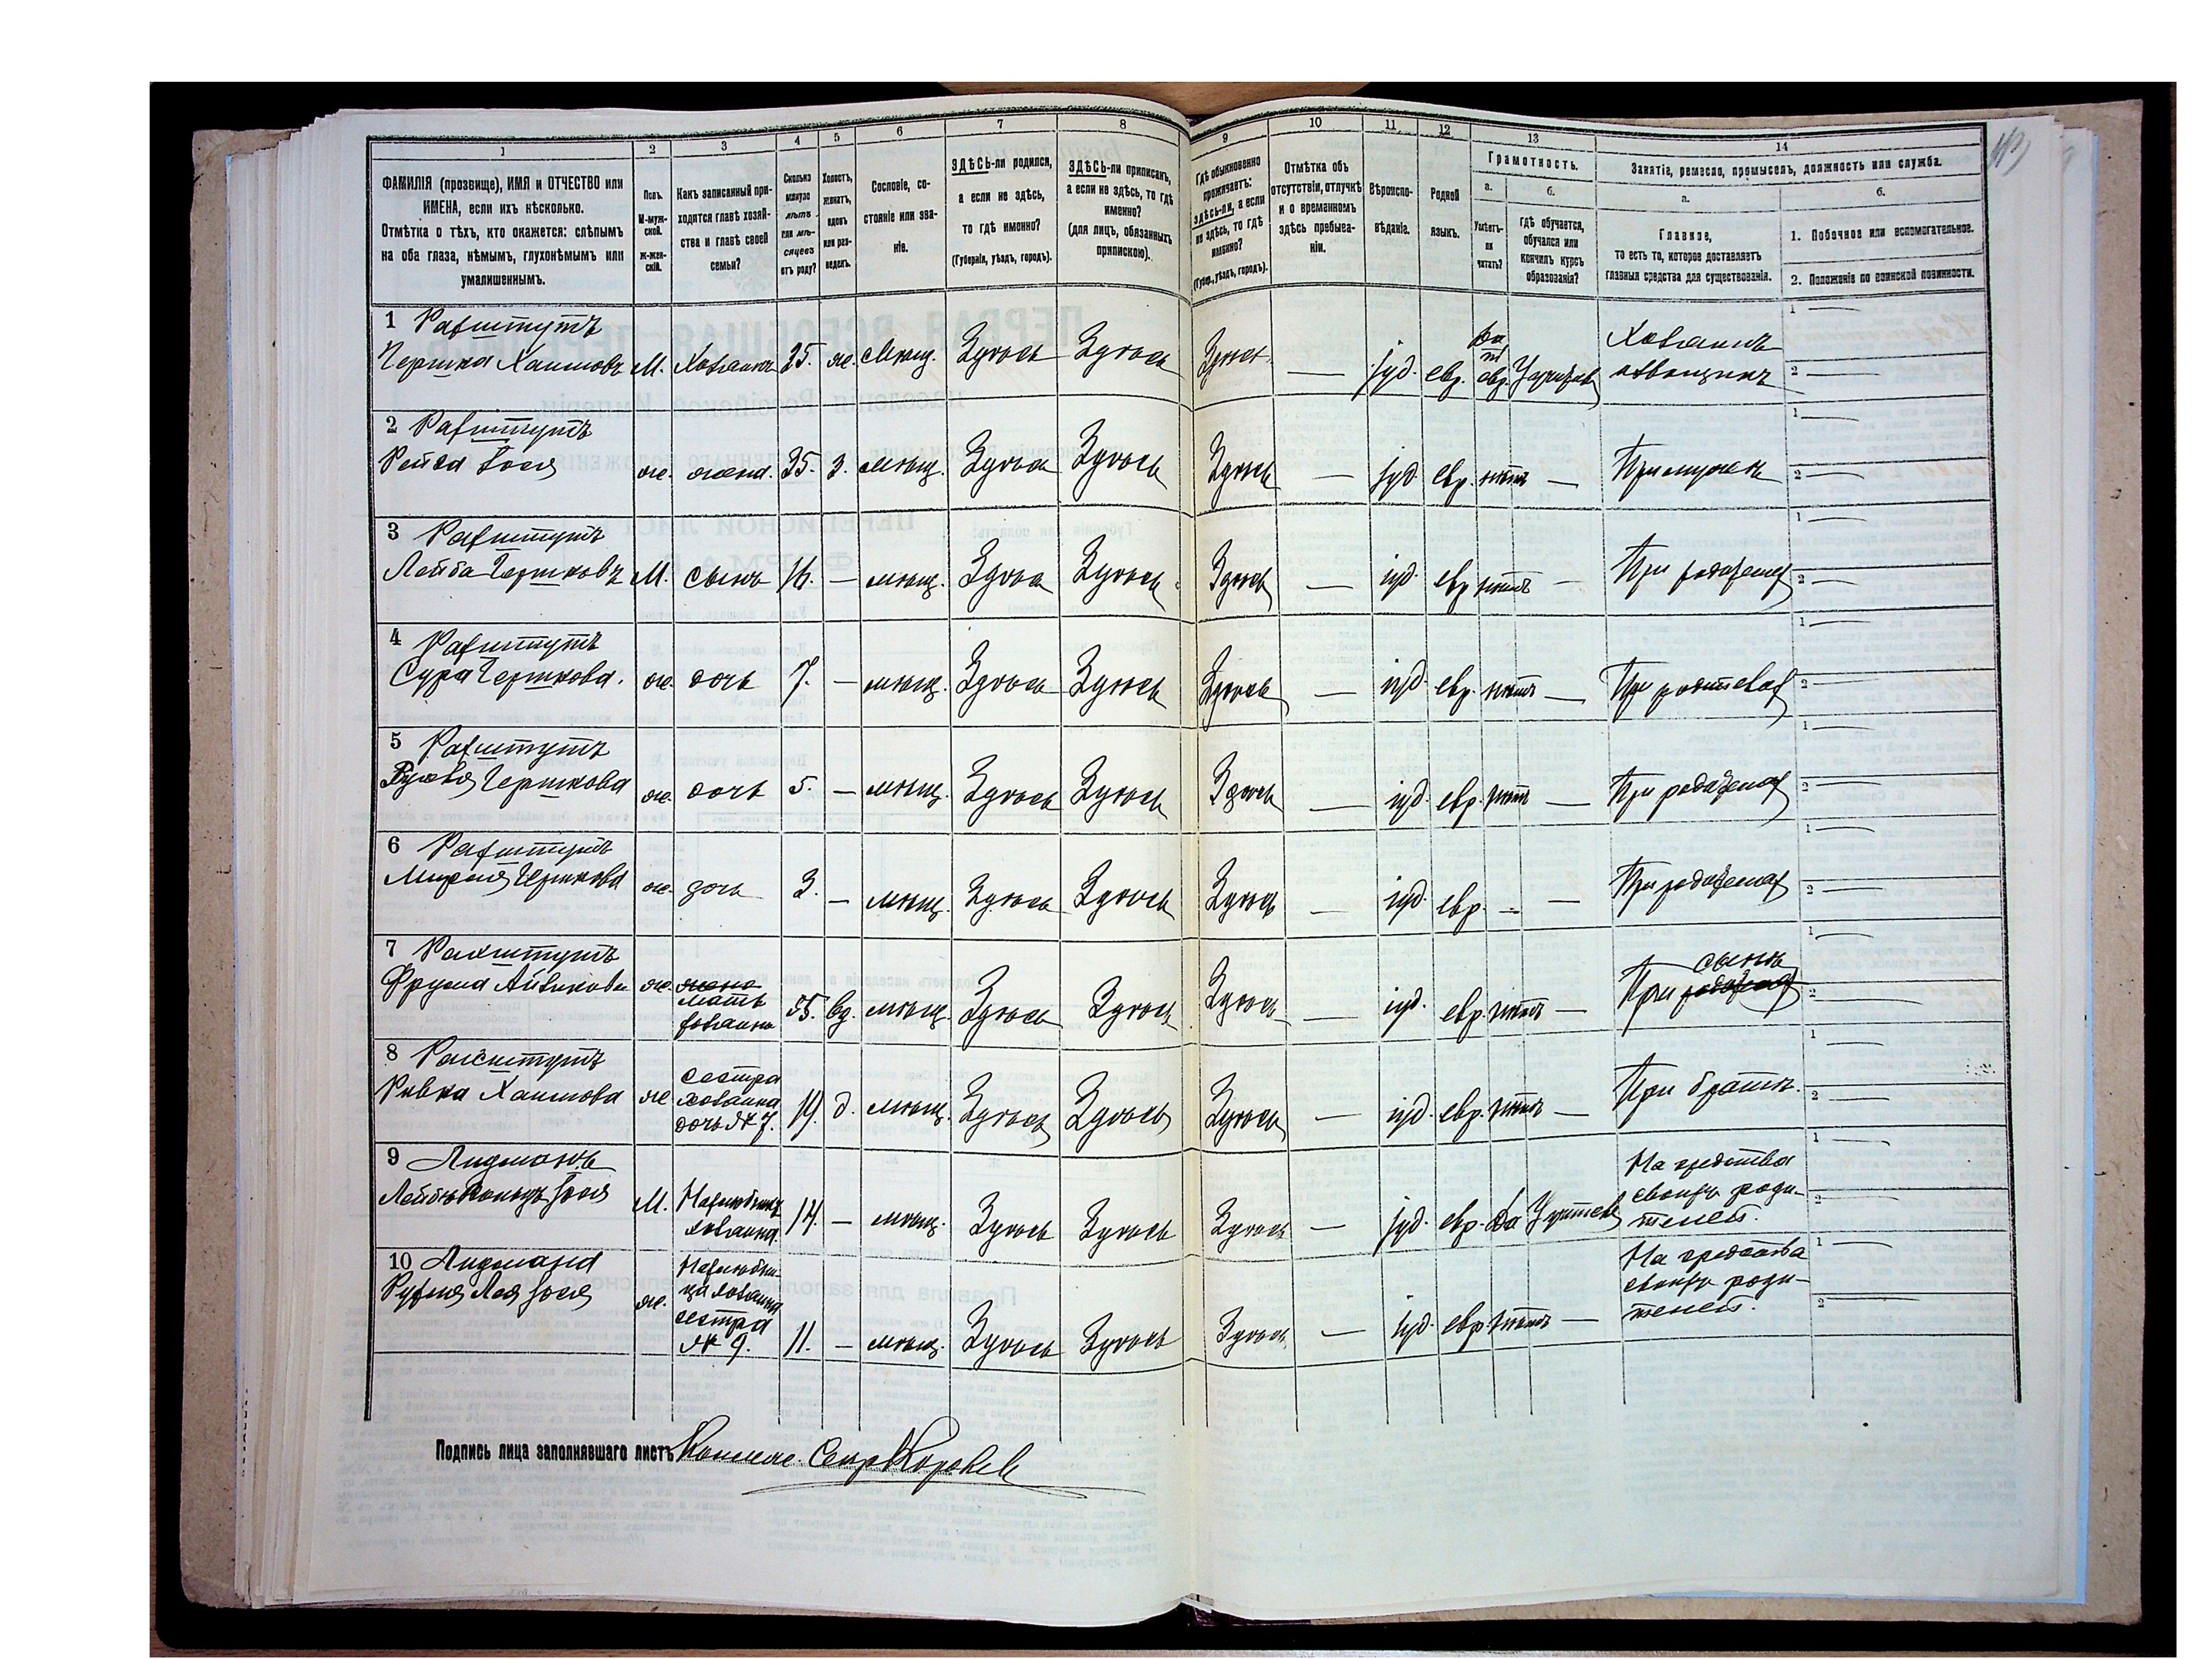 1 2 3 4 5 6 7 8 9 10 11 12 13 14
ФАМИЛІЯ (прозвище), ИМЯ и ОТЧЕСТВО или
ИМЕНА, если ихъ нѣсколько.
Отмѣтка о тѣхъ, кто окажется: слѣпымъ
на оба глаза, нѣмымъ, глухонѣмымъ или
умалишеннымъ.
Полъ.
М-муж-
ской.
ж-жен-
скій.
Какъ записанный при-
ходится главѣ хозяй-
ства и главѣ своей
семьи?
Сколько
минуло
лѣтъ
или мѣ-
сяцевъ
отъ роду?
Холостъ,
женатъ,
вдовъ
или раз-
веденъ.
Сословіе, со-
стояніе или зва-
ніе.
ЗДѢСЬ-ли родился,
а если не здѣсь,
то гдѣ именно?
(Губернія, уѣздъ, городъ).
ЗДѢСЬ-ли приписанъ,
а если не здѣсь, то гдѣ
именно?
(для лицъ, обязанныхъ
припискою).
Гдѣ обыкновенно
проживаетъ:
здѣсь-ли, а если
не здѣсь, то гдѣ
именно?
(Губер., уѣздъ, городъ).
Отмѣтка объ
отсутствіи, отлучкѣ
и о временномъ
здѣсь пребыва-
ніи.
Вѣроиспо-
вѣданіе.
Родной
языкъ.
Грамотность.
а. б.
Умѣетъ-
ли
читать?
гдѣ обучается,
обучался или
кончилъ курсъ
образованія?
Занятіе, ремесло, промыселъ, должность или служба.
а. б.
Главное,
то есть то, которое доставляетъ
главныя средства для существованія.
1. Побочное или вспомогательное.
2. Положеніе по воинской повинности.
1
Гершка Хаимовъ М. Хозяинъ 35. ж. мѣщ. Здѣсь Здѣсь Здѣсь — іуд. евр. Да евр.
Хозяинъ
1 —
2 —
2
Рейза ж. жена. 35. з. мѣщ. Здѣсь Здѣсь Здѣсь — іуд. евр. нѣтъ — При мужѣ
1 —
2 —
3
Лейба Гершковъ М. сынъ 16. — мѣщ. Здѣсь Здѣсь Здѣсь — іуд. евр. нѣтъ — При родителях
1 —
2 —
4
Сура Гершкова. ж. дочь 7. — мѣщ. Здѣсь Здѣсь Здѣсь — іуд. евр. нѣтъ — При родителях
1 —
2 —
5
Гершкова ж. дочь 5. — мѣщ. Здѣсь Здѣсь Здѣсь — іуд. евр. нѣтъ — При родителях
1 —
2 —
6
Гершкова ж. дочь 3. — мѣщ. Здѣсь Здѣсь Здѣсь — іуд. евр. — — При родителях
1 —
2 —
7
Фрума Айзикова ж. жена
мать
хозяина
55. вд. мѣщ. Здѣсь Здѣсь Здѣсь — іуд. евр. нѣтъ — При сынѣ
1 —
2 —
8
Ривка Хаимова ж. сестра
хозяина
дочь № 7.
19. д. мѣщ. Здѣсь Здѣсь Здѣсь — іуд. евр. нѣтъ — При братѣ.
1 —
2 —
9
М. Нахлѣбникъ
хозяина.
14. — мѣщ. Здѣсь Здѣсь Здѣсь — іуд. евр. Да
На средства
своихъ роди-
телей.
1 —
2 —
10
ж. Нахлѣбни-
ца хозяина
сестра
№ 9.
11. — мѣщ. Здѣсь Здѣсь Здѣсь — іуд. евр. нѣтъ —
На средства
своихъ роди-
телей.
1 —
2 —
Подпись лица заполнявшаго листъ